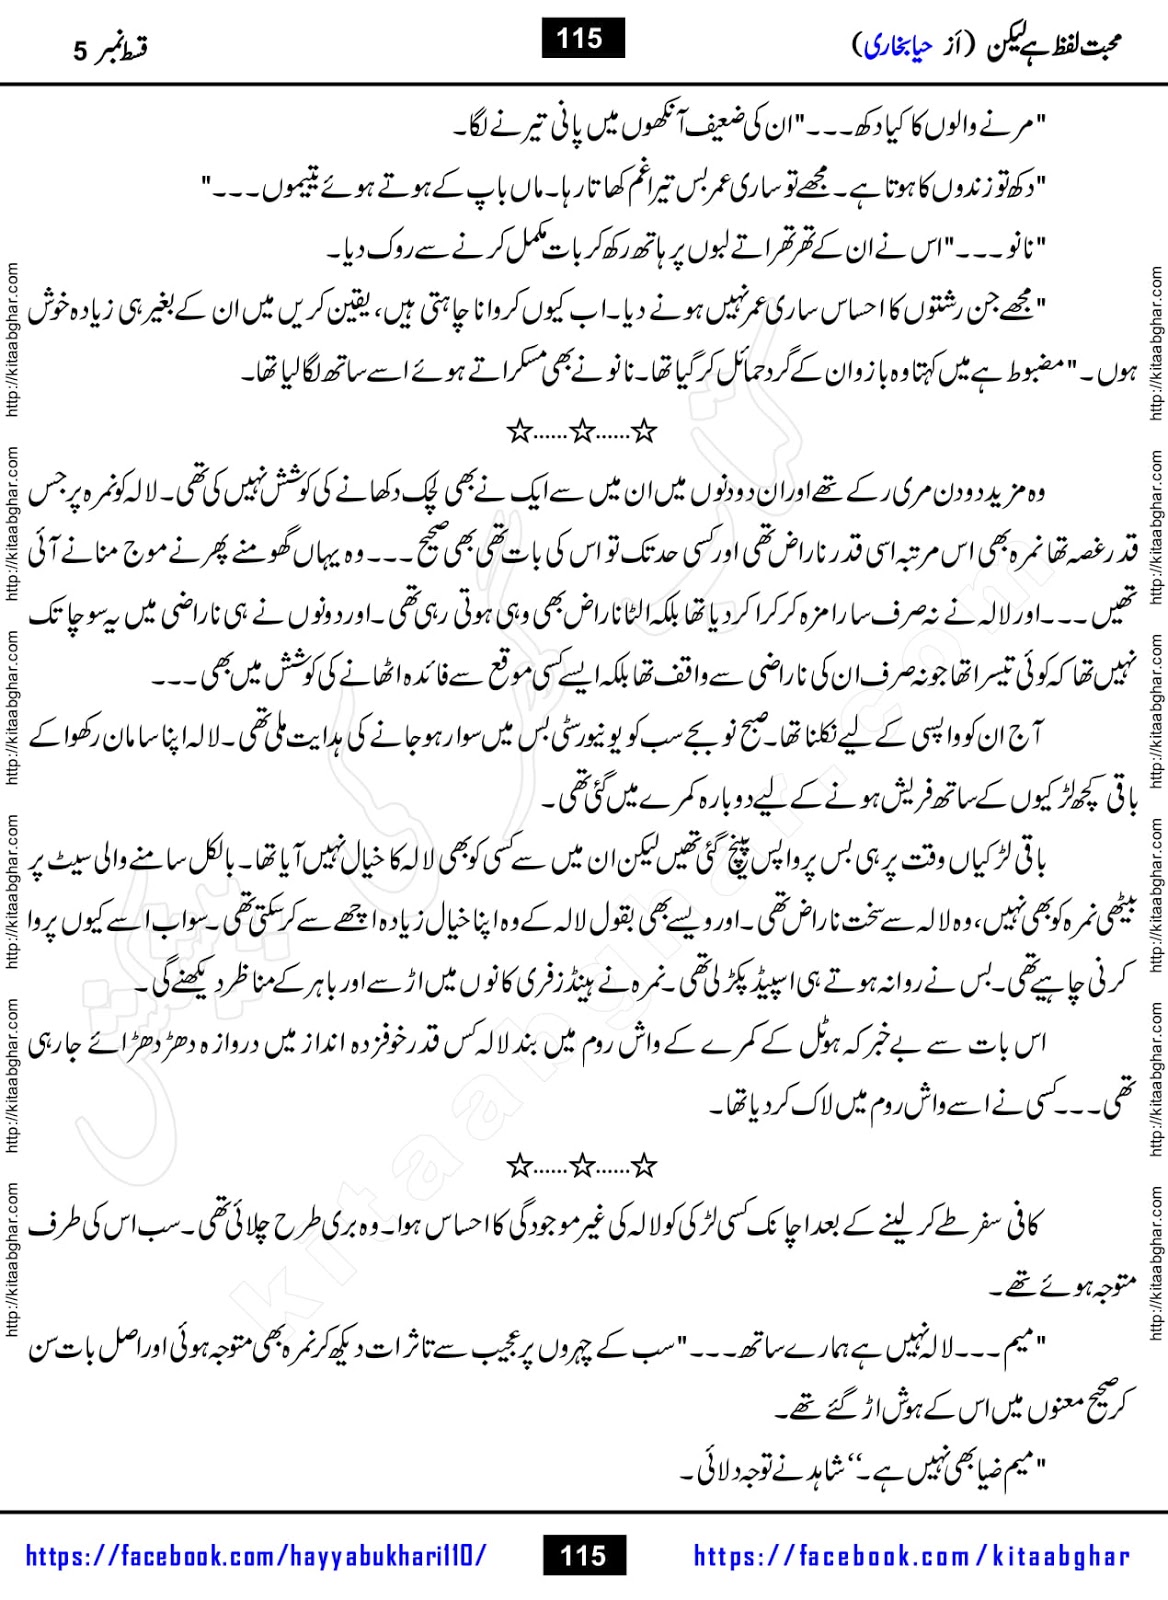 محبت لفظ ہے لیکن (از حیا بخاری)
115
قسط نمبر 5
"مرنے والوں کا کیا دکھ۔۔۔" ان کی ضعیف آنکھوں میں پانی تیرنے لگا۔
"دکھ تو زندوں کا ہوتا ہے۔ مجھے تو ساری عمر بس تیرا غم کھاتا رہا۔ ماں باپ کے ہوتے ہوئے یتیموں۔۔۔"
"نانو۔۔۔" اس نے ان کے تھرتھراتے لبوں پر ہاتھ رکھ کر بات مکمل کرنے سے روک دیا۔
"مجھے جن رشتوں کا احساس ساری عمر نہیں ہونے دیا۔ اب کیوں کروانا چاہتی ہیں، یقین کریں میں ان کے بغیر ہی زیادہ خوش
ہوں۔" مضبوط ہے میں کہتا وہ بازو ان کے گرد حمائل کر گیا تھا۔ نانو نے بھی مسکراتے ہوئے اسے ساتھ لگا لیا تھا۔
☆......☆......☆
وہ مزید دو دن مری رکے تھے اور ان دو دنوں میں ان میں سے ایک نے بھی لچک دکھانے کی کوشش نہیں کی تھی۔ لالہ کو نمرہ پر جس
قدر غصہ تھا نمرہ بھی اس مرتبہ اسی قدر ناراض تھی اور کسی حد تک تو اس کی بات تھی بھی صحیح۔۔۔ وہ یہاں گھومنے پھرنے موج منانے آئی
تھیں۔۔۔ اور لالہ نے نہ صرف سارا مزہ کرکرا کر دیا تھا بلکہ الٹا ناراض بھی وہی ہوتی رہی تھی۔ اور دونوں نے ہی ناراضی میں یہ سوچا تک
نہیں تھا کہ کوئی تیسرا تھا جو نہ صرف ان کی ناراضی سے واقف تھا بلکہ ایسے کسی موقع سے فائدہ اٹھانے کی کوشش میں بھی۔۔۔
آج ان کو واپسی کے لیے نکلنا تھا۔ صبح نو بجے سب کو یونیورسٹی بس میں سوار ہو جانے کی ہدایت ملی تھی۔ لالہ اپنا سامان رکھوا کے
باقی کچھ لڑکیوں کے ساتھ فریش ہونے کے لیے دوبارہ کمرے میں گئی تھی۔
باقی لڑکیاں وقت پر ہی بس پر واپس پہنچ گئی تھیں لیکن ان میں سے کسی کو بھی لالہ کا خیال نہیں آیا تھا۔ بالکل سامنے والی سیٹ پر
بیٹھی نمرہ کو بھی نہیں، وہ لالہ سے سخت ناراض تھی۔ اور ویسے بھی بقول لالہ کے وہ اپنا خیال زیادہ اچھے سے کر سکتی تھی۔ سو اب اسے کیوں پروا
کرنی چاہیے تھی۔ بس نے روانہ ہوتے ہی اسپیڈ پکڑ لی تھی۔ نمرہ نے ہینڈز فری کانوں میں اڑسے اور باہر کے مناظر دیکھنے گی۔
اس بات سے بے خبر کہ ہوٹل کے کمرے کے واش روم میں بند لالہ کس قدر خوفزدہ انداز میں دروازہ دھڑ دھڑائے جا رہی
تھی۔۔۔ کسی نے اسے واش روم میں لاک کر دیا تھا۔
☆......☆......☆
کافی سفر طے کر لینے کے بعد اچانک کسی لڑکی کو لالہ کی غیر موجودگی کا احساس ہوا۔ وہ بری طرح چلائی تھی۔ سب اس کی طرف
متوجہ ہوئے تھے۔
"میم۔۔۔ لالہ نہیں ہے ہمارے ساتھ۔۔۔" سب کے چہروں پر عجیب سے تاثرات دیکھ کر نمرہ بھی متوجہ ہوئی اور اصل بات سن
کر صحیح معنوں میں اس کے ہوش اڑ گئے تھے۔
"میم ضیا بھی نہیں ہے۔" شاہد نے توجہ دلائی۔
https://facebook.com/hayyabukhari110/
115
https://facebook.com/kitaabghar
http://kitaabghar.com
http://kitaabghar.com
http://kitaabghar.com
http://kitaabghar.com
http://kitaabghar.com
http://kitaabghar.com
http://kitaabghar.com
http://kitaabghar.com
http://kitaabghar.com
http://kitaabghar.com
http://kitaabghar.com
http://kitaabghar.com
کتاب گھر کی پیشکش
kitaabghar.com